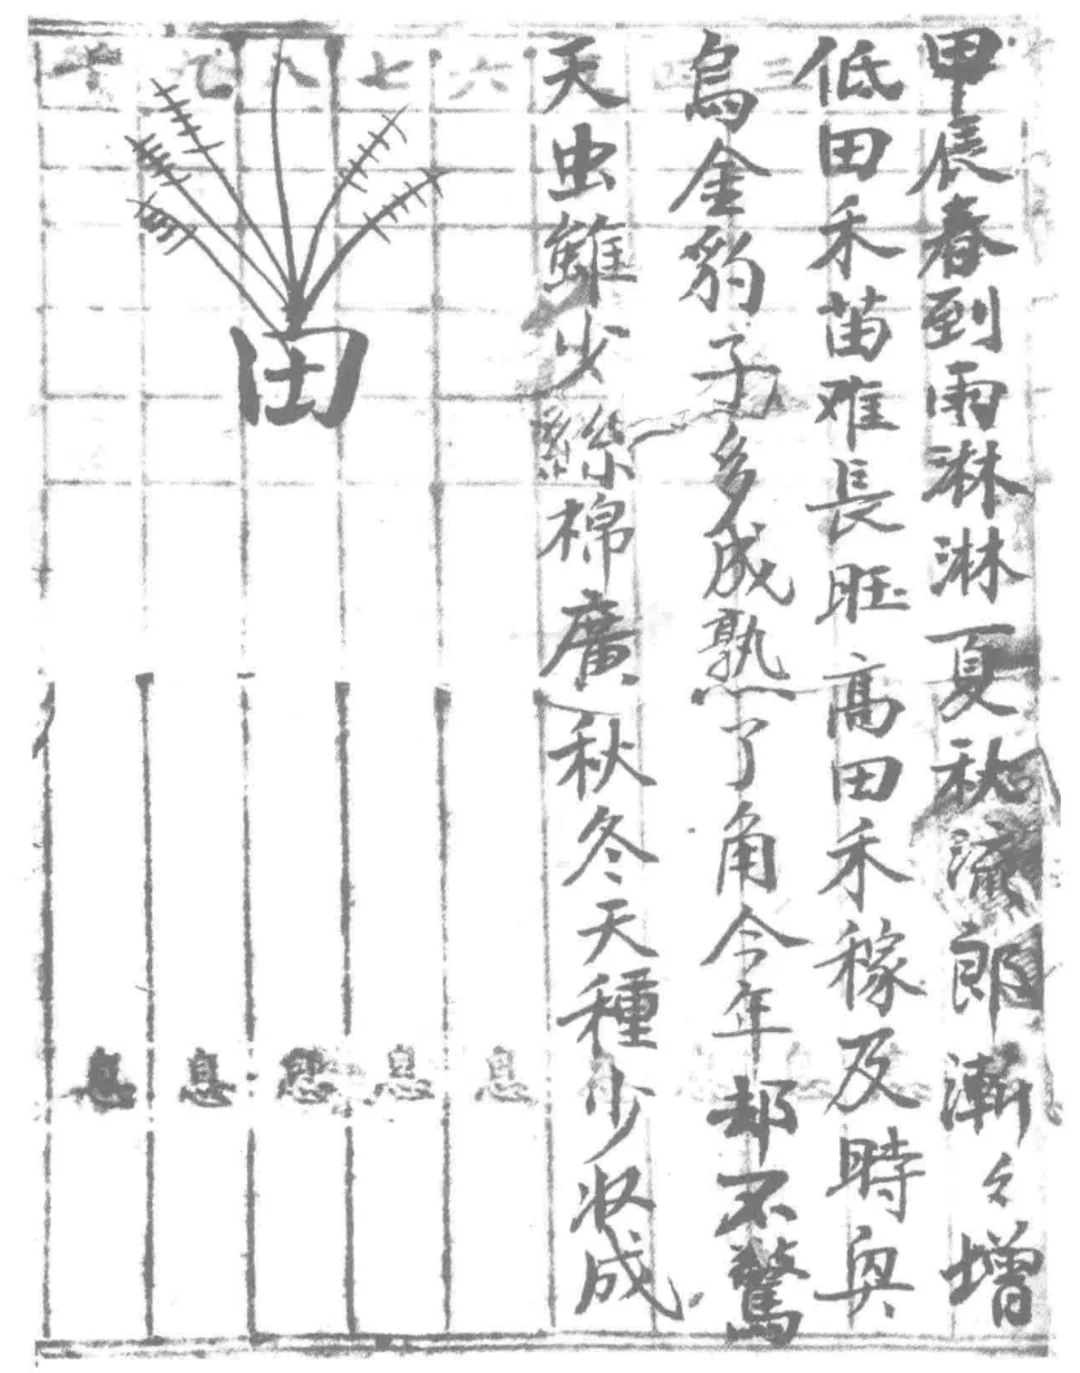 甲辰春到雨淋淋夏秋流郎漸々增
低田禾苗难長旺高田禾稼及時興
烏金豹子多成熟了角今年却不驚
天虫雖少絲棉廣秋冬天種少収成
三
六
七
八
十
田
息
息
息
息
息